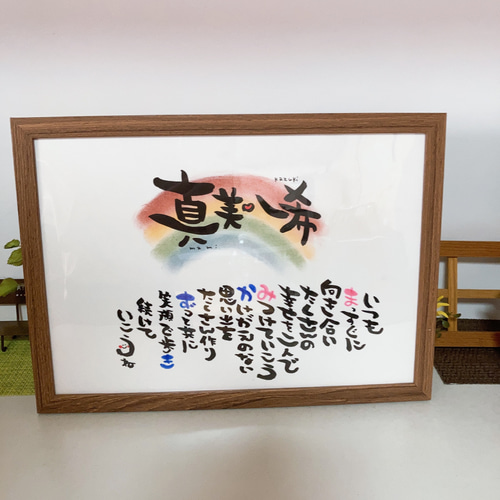 kazuki
真美 一希
mami
いつも
まっすぐに
向き合い
たくさんの
幸せを二人で
みつけていこう
かけがえのない
思い出を
たくさん作り
ずっと共に
笑顔で歩き
続けて
いこうね